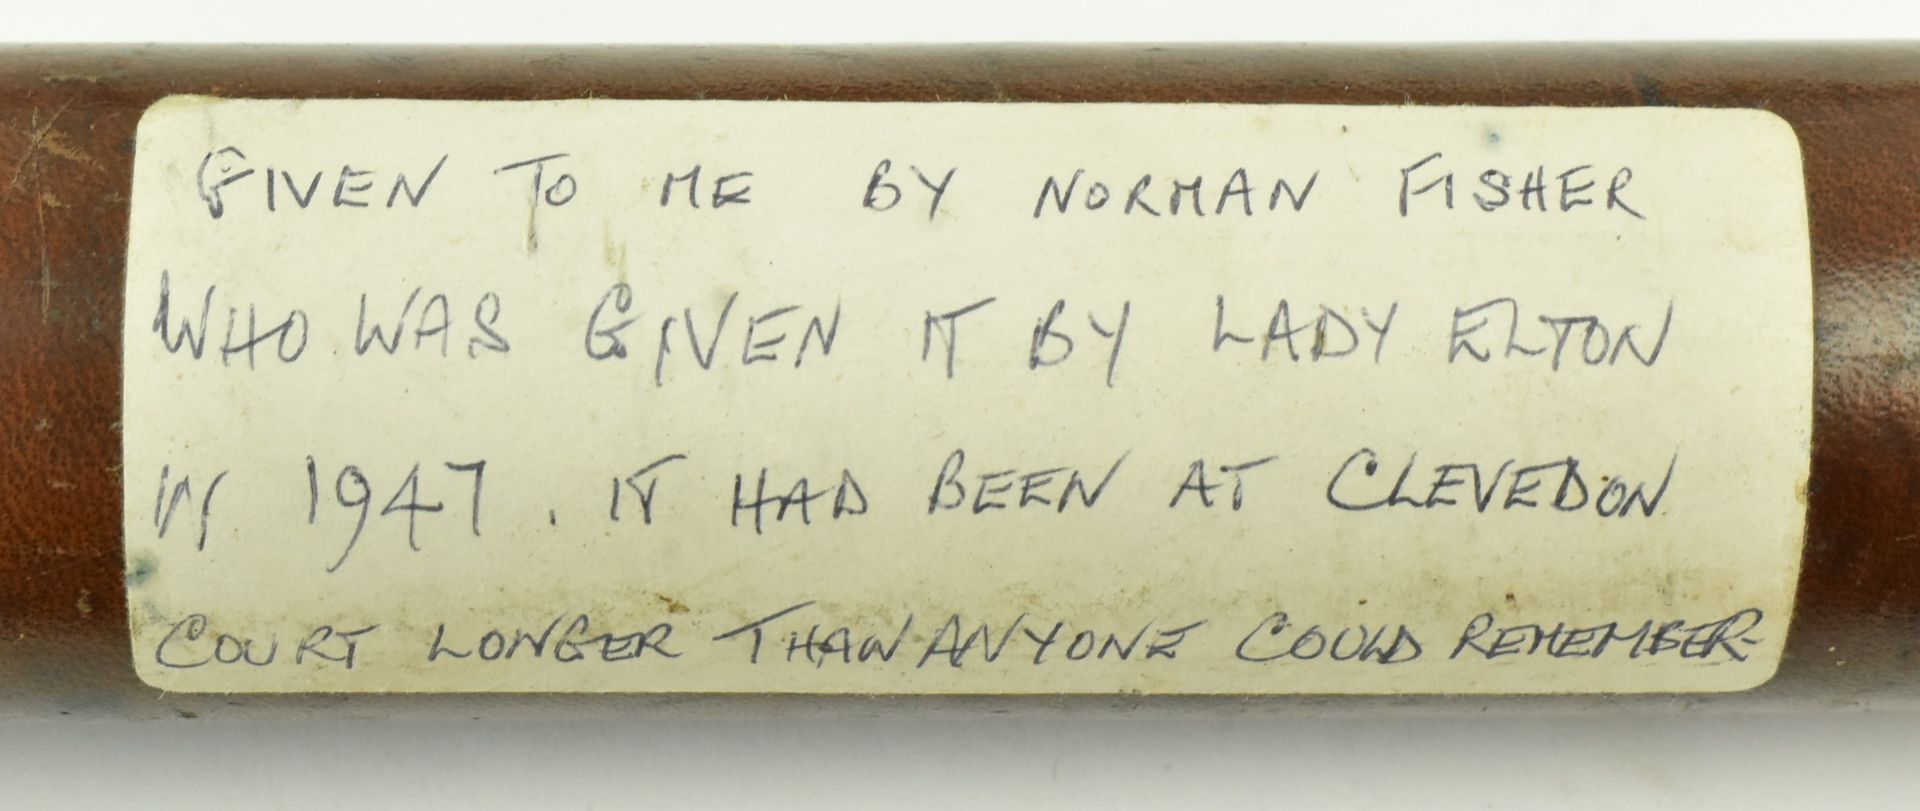 GIVEN TO ME BY NORMAN FISHER
WHO WAS GIVEN IT BY LADY ELTON
IN 1947. IT HAD BEEN AT CLEVEDON
COURT LONGER THAN ANYONE COULD REMEMBER